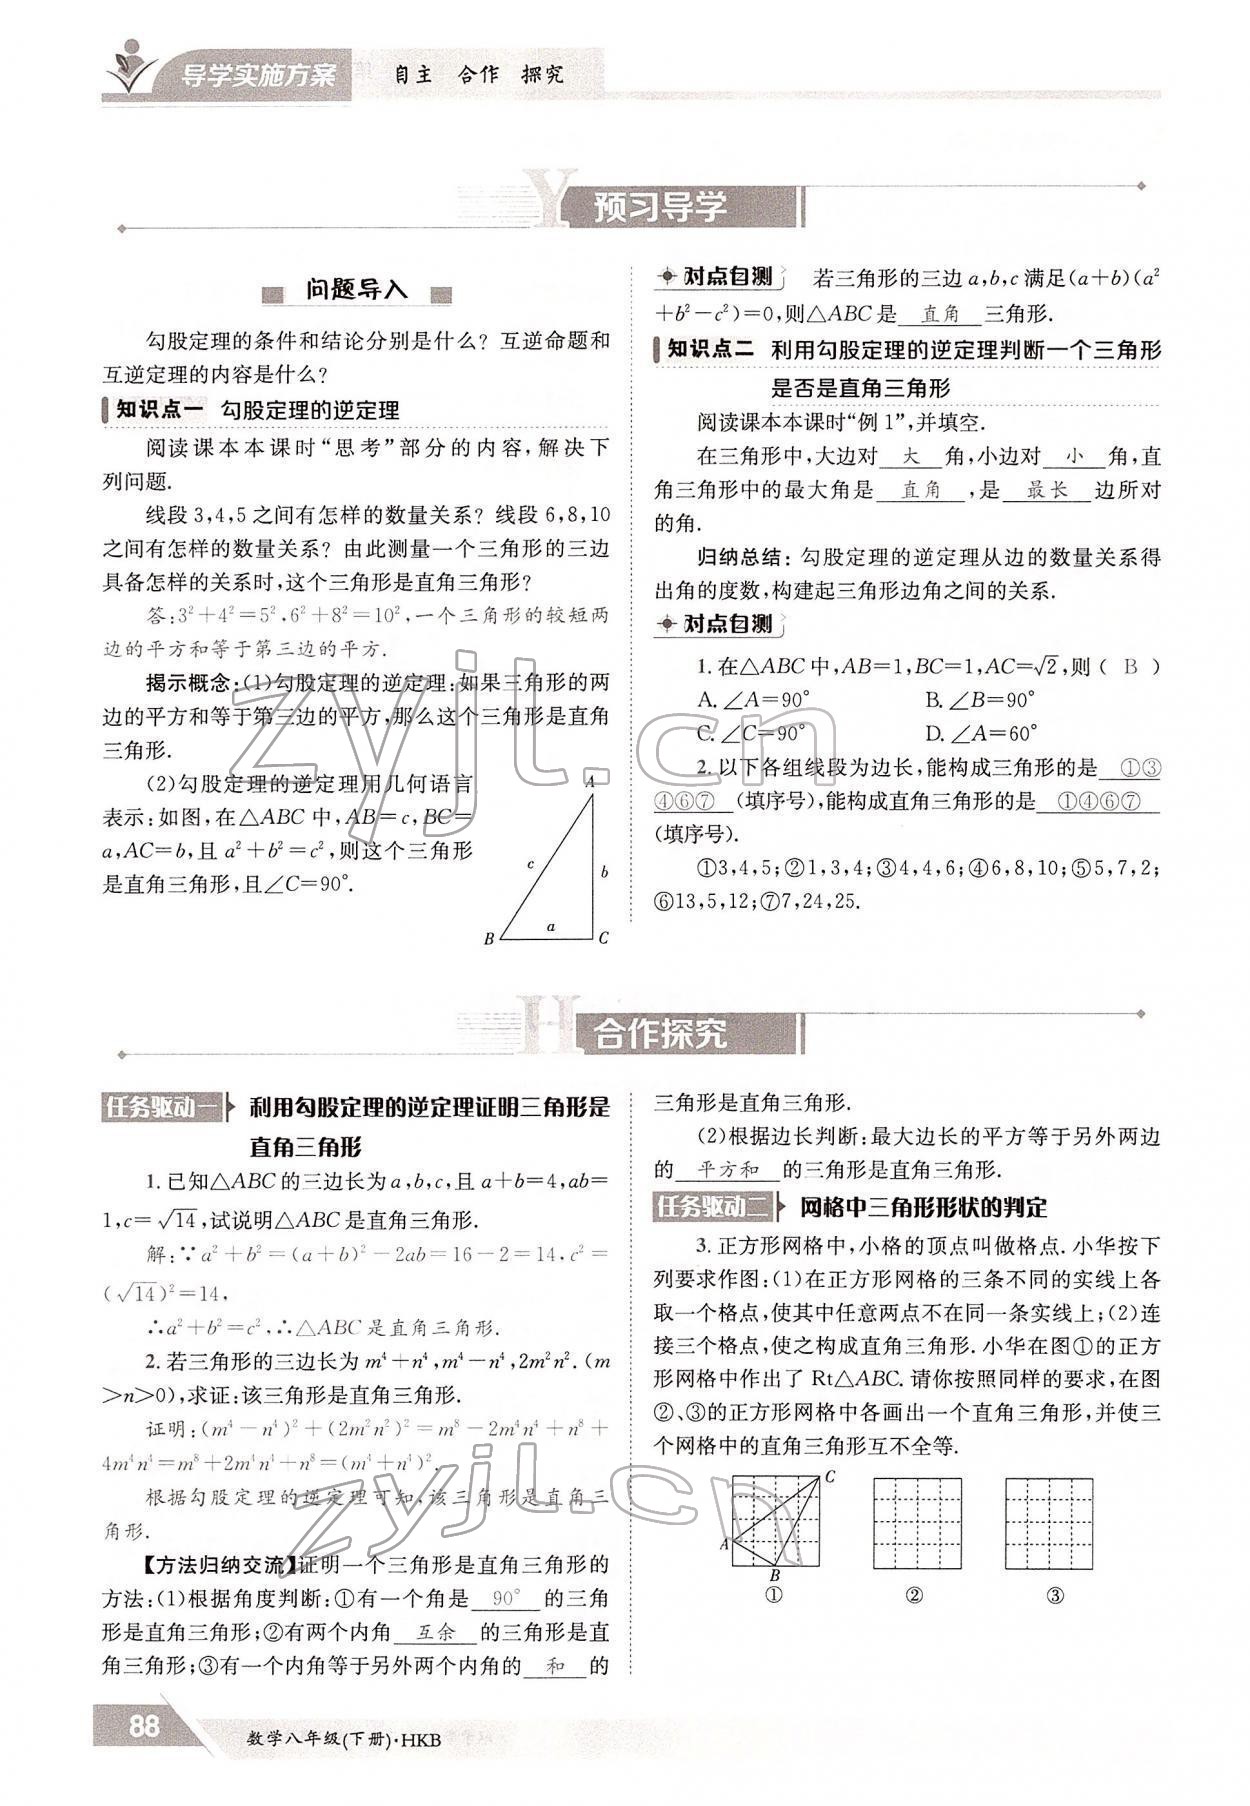 导学实施方案 自主 合作 探究
预习导学
问题导入
勾股定理的条件和结论分别是什么？互逆命题和
互逆定理的内容是什么？
知识点一 勾股定理的逆定理
阅读课本本课时“思考”部分的内容，解决下
列问题.
线段 3,4,5 之间有怎样的数量关系？线段 6,8,10
之间有怎样的数量关系？由此测量一个三角形的三边
具备怎样的关系时，这个三角形是直角三角形？
答：3²＋4²＝5²，6²＋8²＝10²，一个三角形的较短两
边的平方和等于第三边的平方.
揭示概念：(1)勾股定理的逆定理：如果三角形的两
边的平方和等于第三边的平方，那么这个三角形是直角
三角形.
(2)勾股定理的逆定理用几何语言
表示：如图，在△ABC 中，AB＝c，BC＝
a，AC＝b，且 a²＋b²＝c²，则这个三角形
是直角三角形，且∠C＝90°.
A
c
b
a
B
C
对点自测 若三角形的三边 a,b,c 满足(a＋b)(a²
＋b²－c²)＝0，则△ABC 是 直角 三角形.
知识点二 利用勾股定理的逆定理判断一个三角形
是否是直角三角形
阅读课本本课时“例 1”，并填空.
在三角形中，大边对 大 角，小边对 小 角，直
角三角形中的最大角是 直角 ，是 最长 边所对
的角.
归纳总结：勾股定理的逆定理从边的数量关系得
出角的度数，构建起三角形边角之间的关系.
对点自测
1. 在△ABC 中，AB＝1，BC＝1，AC＝√2，则（ B ）
A. ∠A＝90° B. ∠B＝90°
C. ∠C＝90° D. ∠A＝60°
2. 以下各组线段为边长，能构成三角形的是 ①③
④⑥⑦ (填序号)，能构成直角三角形的是 ①④⑥⑦
(填序号).
①3,4,5；②1,3,4；③4,4,6；④6,8,10；⑤5,7,2；
⑥13,5,12；⑦7,24,25.
合作探究
任务驱动一 利用勾股定理的逆定理证明三角形是
直角三角形
1. 已知△ABC 的三边长为 a,b,c，且 a＋b＝4，ab＝
1，c＝√14，试说明△ABC 是直角三角形.
解：∵a²＋b²＝(a＋b)²－2ab＝16－2＝14，c²＝
(√14)²＝14，
∴a²＋b²＝c²，∴△ABC 是直角三角形.
2. 若三角形的三边长为 m⁴＋n⁴，m⁴－n⁴，2m²n².(m
＞n＞0)，求证：该三角形是直角三角形.
证明：(m⁴－n⁴)²＋(2m²n²)²＝m⁸－2m⁴n⁴＋n⁸＋
4m⁴n⁴＝m⁸＋2m⁴n⁴＋n⁸＝(m⁴＋n⁴)².
根据勾股定理的逆定理可知，该三角形是直角三
角形.
【方法归纳交流】证明一个三角形是直角三角形的
方法：(1)根据角度判断：①有一个角是 90° 的三角
形是直角三角形；②有两个内角 互余 的三角形是直
角三角形；③有一个内角等于另外两个内角的 和 的
三角形是直角三角形.
(2)根据边长判断：最大边长的平方等于另外两边
的 平方和 的三角形是直角三角形.
任务驱动二 网格中三角形形状的判定
3. 正方形网格中，小格的顶点叫做格点. 小华按下
列要求作图：(1)在正方形网格的三条不同的实线上各
取一个格点，使其中任意两点不在同一条实线上；(2)连
接三个格点，使之构成直角三角形. 小华在图①的正方
形网格中作出了 Rt△ABC. 请你按照同样的要求，在图
②、③的正方形网格中各画出一个直角三角形，并使三
个网格中的直角三角形互不全等.
C
A
B
① ② ③
88 数学八年级(下册)·HKB
zyjl.cn
zyjl.cn